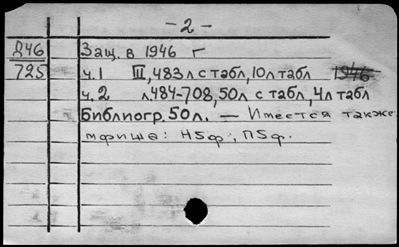 – 2 –
Д46 Защ. в 1946 г
725 ч.1 III, 483 л с табл, 10 л табл 1946
ч.2 л.484-708, 50 л с табл, 4 л табл
Библиогр. 50 л. — Имеется также
мфиша: Н5ф; П5ф.